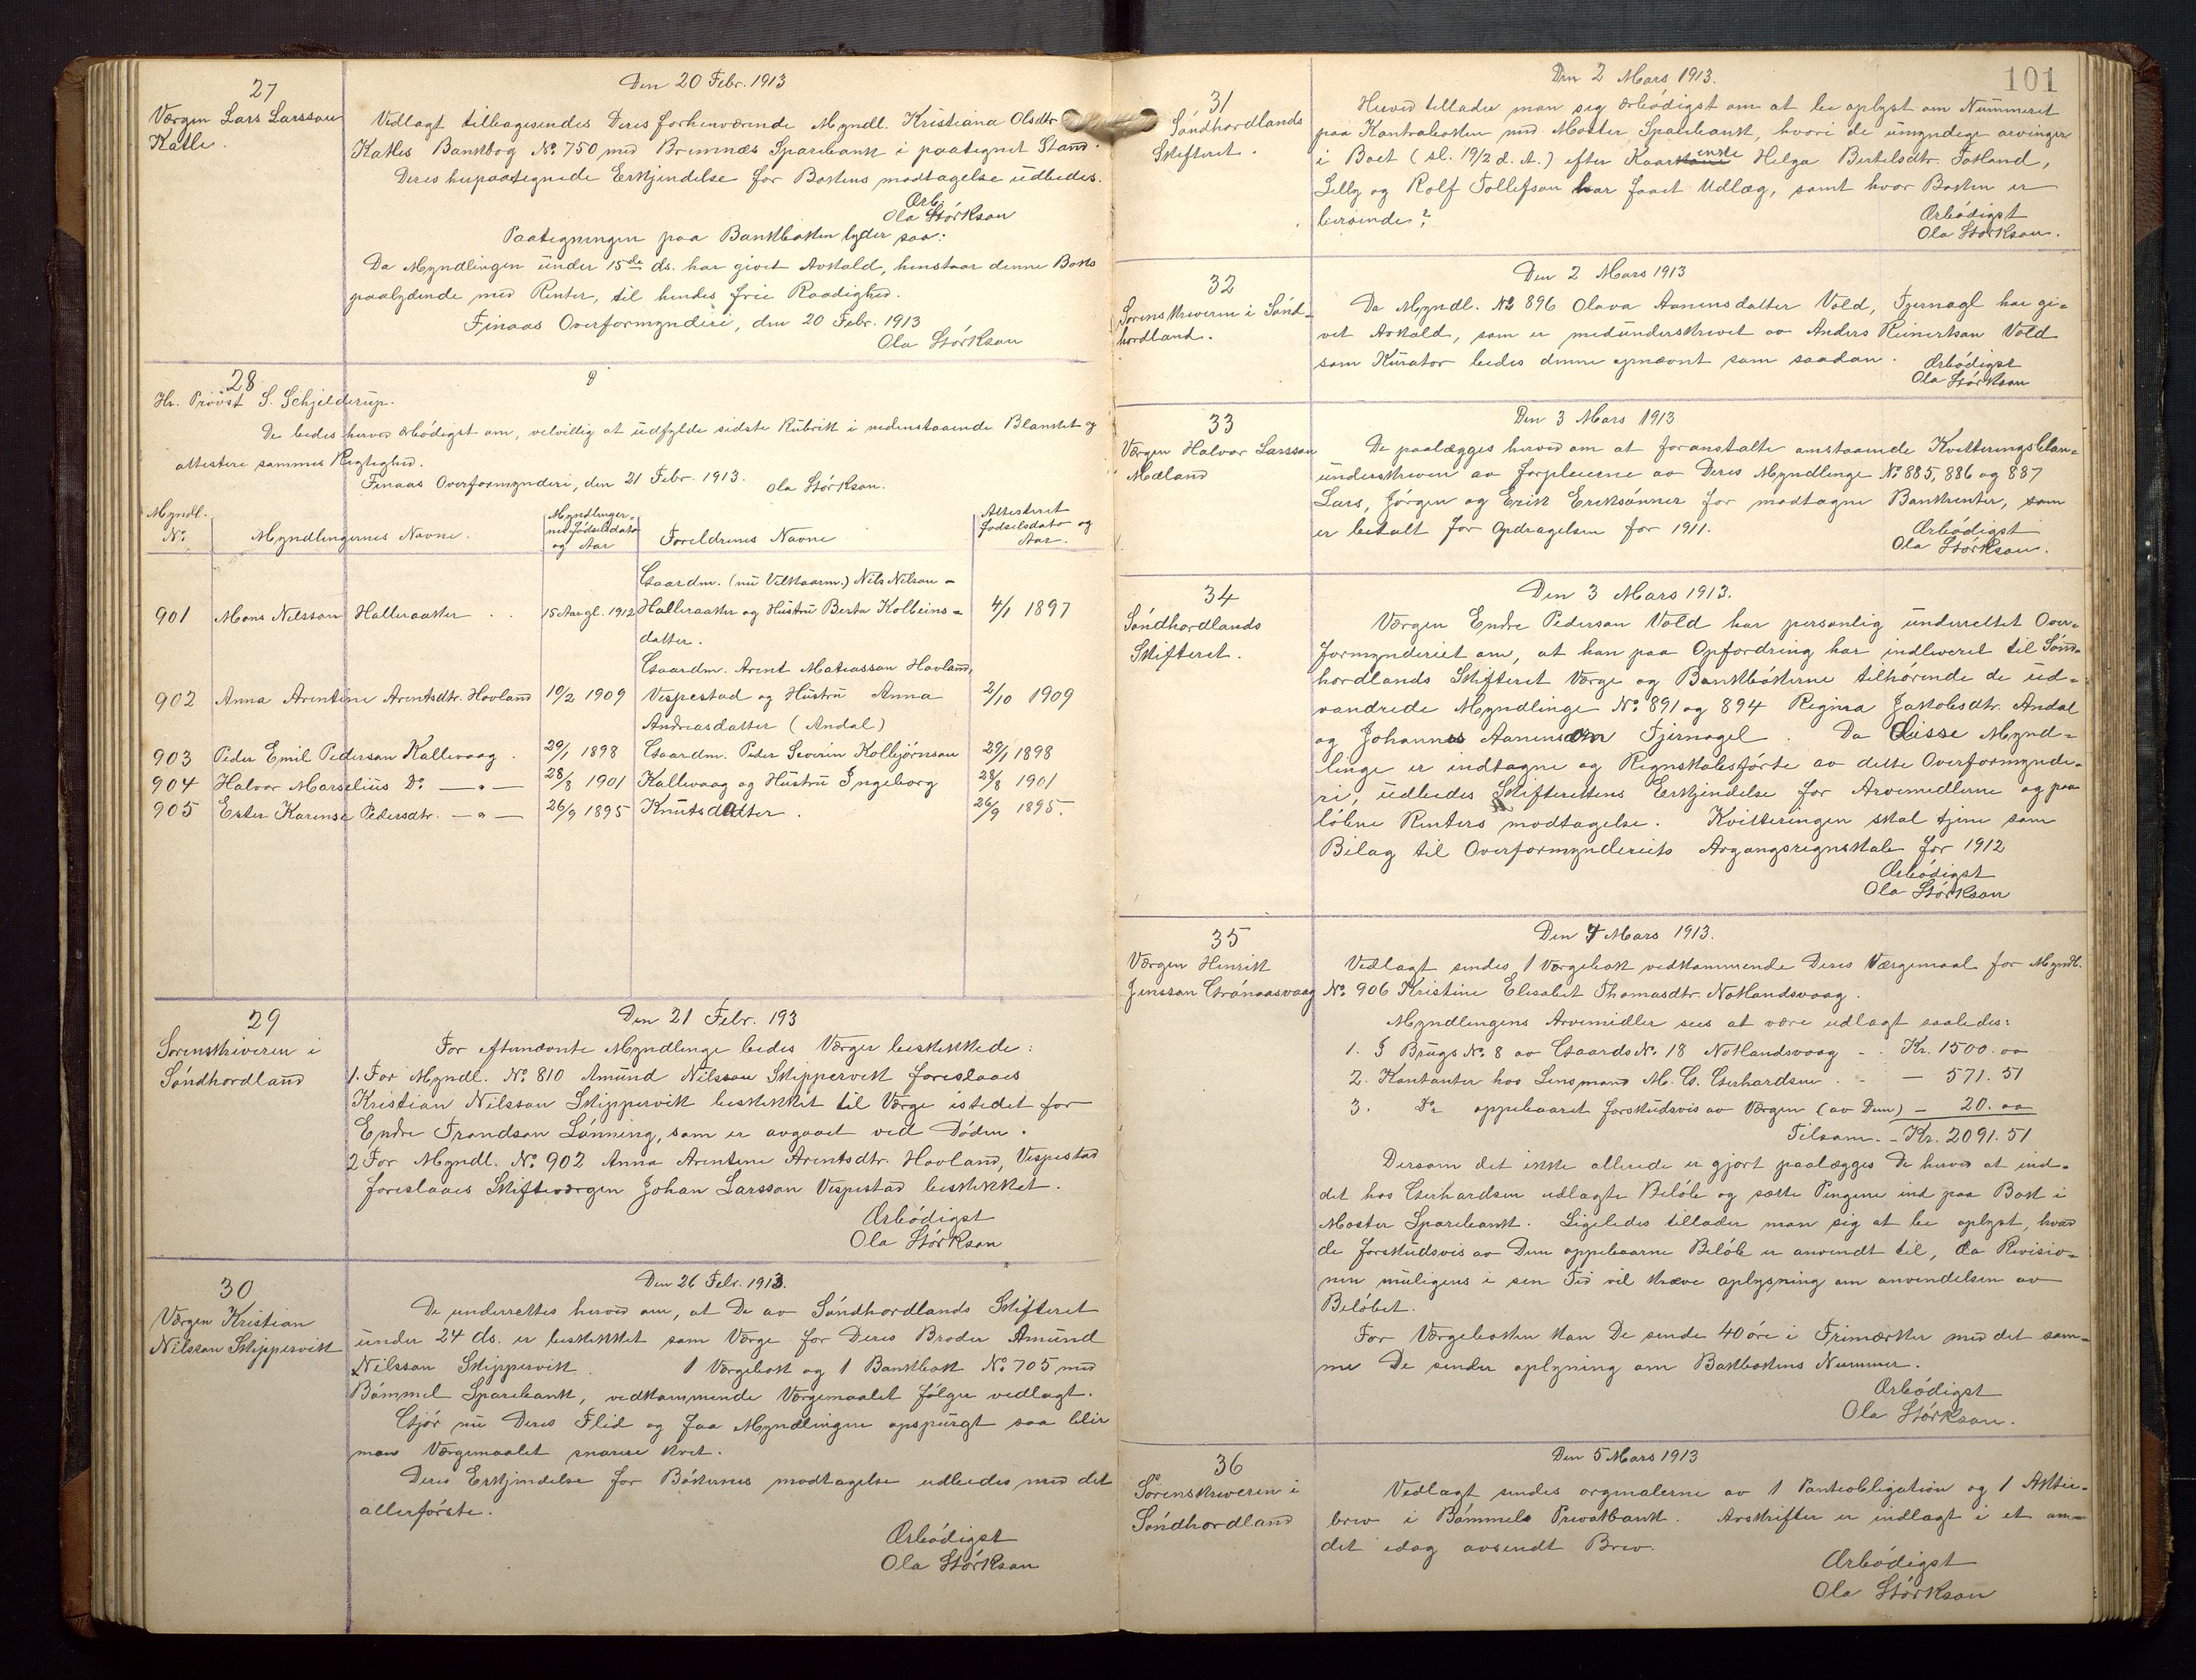 27
Værgen Lars Larsson
Katle.
Den 20 Febr. 1913
Vedlagt tilbagesendes Deres forhenværende Myndl. Kristiana Olsdtr.
Katles Bankbog No. 750 med Bremnæs Sparebank i paategnet Stand.
Deres herpaategnede Erkjendelse for Bokens modtagelse udbedes.
Ærb.
Ola Størkson
Paategningen paa Bankboken lyder saa:
Da Myndlingen under 15de ds. har givet Avkald, henstaar denne Boks
paalydende med Renter, til hendes frie Raadighed.
Finaas Overformynderi, den 20 Febr. 1913
Ola Størkson
28
Hr. Provst S. Schjelderup.
De bedes herved ærbødigst om, velvillig at udfylde sidste Rubrik i nedenstaaende Blanket og
attestere sammes Rigtighed.
Finaas Overformynderi, den 21 Febr. 1913. Ola Størkson.
Myndl. No. Myndlingernes Navne. Myndlinger- nes fødselsdato og Aar Foreldrenes Navne Attesteret fødselsdato og Aar.
Gaardm. (nu Vilkaarm.) Nils Nilson -
901 Mons Nilsson Halleraaker 15 Aar gl. 1912 Halleraaker og Hustru Berta Kolbeins- 4/1 1897
datter.
Gaardm. Arent Matiasson Hovland,
902 Anna Arentine Arentsdtr. Hovland 10/2 1909 Vespestad og Hustru Anna 2/10 1909
Andreasdatter (Andal)
903 Peder Emil Pederson Kallevaag. 29/1 1898 Gaardm. Peder Severin Kolbjørnson 29/1 1898
904 Halvor Marselius Do. — " — 28/8 1901 Kallevaag og Hustru Ingeborg 28/8 1901
905 Ester Karense Pedersdtr. — " — 26/9 1895 Knutsdatter. 26/9 1895.
29
Sorenskriveren i
Søndhordland
Den 21 Febr. 193
For efternævnte Myndlinge bedes Værger beskikkede:
1. For Myndl. No. 810 Amund Nilsson Skippervik foreslaaes
Kristian Nilsson Skippervik beskikket til Værge istedet for
Endre Trondson Lønning, som er avgaaet ved Døden.
2 For Myndl. No. 902 Anna Arentine Arentsdtr. Hovland, Vespestad
foreslaaes Skifteværgen Johan Larsson Vespestad beskikket.
Ærbødigst
Ola Størkson
30
Værgen Kristian
Nilsson Skippervik
Den 26 Febr. 1913.
De underrettes herved om, at De av Søndhordlands Skifteret
under 24 ds. er beskikket som Værge for Deres Broder Amund
Nilsson Skippervik. 1 Værgebok og 1 Bankbok No. 705 med
Bømmel Sparebank, vedkommende Værgemaalet følger vedlagt.
Gjør nu Deres Flid og faa Myndlingen opspurgt saa blir
man Værgemaalet snarere kvit.
Deres Erkjendelse for Bøkernes modtagelse udbedes med det
allerførste.
Ærbødigst
Ola Størkson
101
31
Søndhordlands
Skifteret.
Den 2 Mars 1913.
Herved tillader man sig ærbødigst om at be oplyst om Nummeret
paa Kontraboken med Moster Sparebank, hvori de umyndige arvinger
i Boet (sl. 19/2 d. A.) efter Kaarkone enke Helga Bertelsdtr. Totland,
Lelly og Rolf Tollefson har faaet Udlæg, samt hvor Boken er
beroende?
Ærbødigst
Ola Størkson.
32
Sorenskriveren i Sønd-
hordland.
Den 2 Mars 1913
Da Myndl. No 896 Olava Aanensdatter Vold, Tjernagl har gi-
vet Avkald, som er medunderskrevet av Anders Reinertson Vold
som Kurator bedes denne opnævnt som saadan.
Ærbødigst
Ola Størkson
33
Værgen Halvor Larsson
Mæland
Den 3 Mars 1913
De paalægges herved om at foranstalte omstaaende Kvitteringsblan-
underskreven av forpleierne av Deres Myndlinge No 885, 886 og 887
Lars, Jørgen og Erik Ereksønner for modtagne Bankrenter, som
er betalt for Opdragelsen for 1911.
Ærbødigst
Ola Størkson.
34
Søndhordlands
Skifteret.
Den 3 Mars 1913.
Værgen Endre Pederson Vold har personlig underrettet Over-
formynderiet om, at han paa Opfordring har indleveret til Sønd-
hordlands Skifteret Værge og Bankbøkerne tilhørende de ud-
vandrede Myndlinge No. 891 og 894 Regina Jakobsdtr. Andal
og Johannes Aanensøn Tjernagel. Da Disse Mynd-
linge er indtagne og Regnskabsførte av dette Overformynde-
ri, udbedes Skifterettens Erkjendelse for Arvemidlerne og paa
løbne Renters modtagelse. Kvitteringen skal tjene som
Bilag til Overformynderiets Avgangsregnskab for 1912
Ærbødigst
Ola Størkson
35
Værgen Henrik
Jensson Grønaasvaag
Den 4 Mars 1913.
Vedlagt sendes 1 Værgebok vedkommende Deres Værgemaal for Myndl.
No. 906 Kristine Elisabet Thomasdtr. Notlandsvaag.
Myndlingens Arvemidler sees at være udlagt saaledes:
1. I Brugs No. 8 av Gaards No. 18 Notlandsvaag - . Kr. 1500.00
2. Kontanter hos Lensmand M. G. Gerhardsen . - — 571.51
3. Do. oppebaaret forskudsvis av Værgen (av Dem) — 20.00
Tilsam. - Kr. 2091.51
Dersom det ikke allerede er gjort paalægges De herved at ind-
det hos Gerhardsen udlagte Beløb og sætte Pengene ind paa Bok i
Moster Sparebank. Ligeledes tillader man sig at be oplyst, hvad
de forskudsvis av Dem oppebaarne Beløb er anvendt til, da Revisio-
nen muligens i sen Tid vil kræve oplysning om anvendelsen av
Beløbet.
For Værgeboken kan De sende 40 øre i Frimærker med det sam-
me De sender oplyning om Bakbokens Nummer.
Ærbødigst
Ola Størkson.
36
Sorenskriveren i
Søndhordland
Den 5 Mars 1913
Vedlagt sendes orginalerne av 1 Panteobligation og 1 Aktie-
brev i Bømmels Privatbank. Avskrifter er indlagt i et an-
det idag avsendt Brev.
Ærbødigst
Ola Størkson